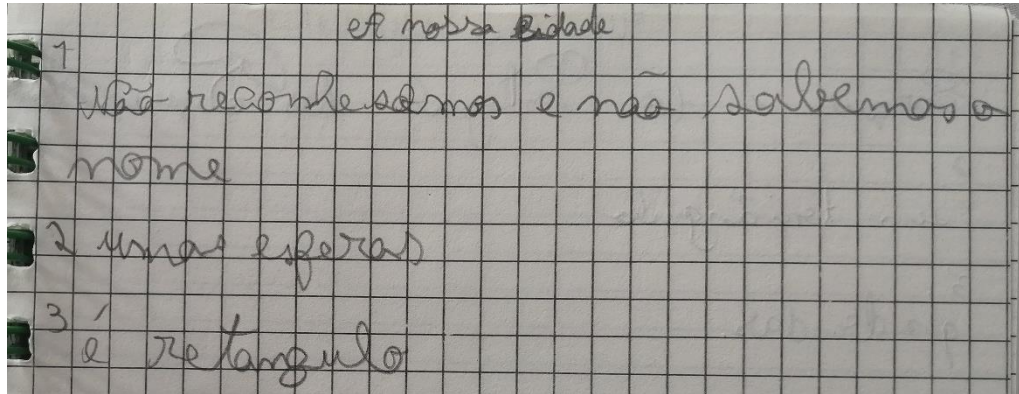 A nossa cidade
1
Não reconhesemos e não sabemos o
nome
2 umas esferas
3 é retangulo